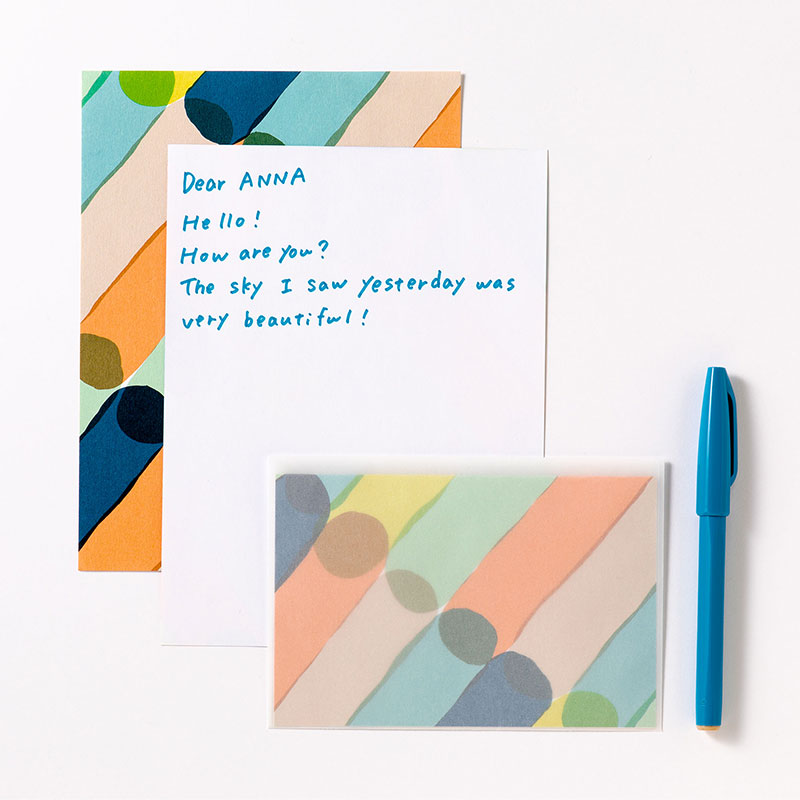 Dear ANNA
Hello!
How are you?
The sky I saw yesterday was
very beautiful!